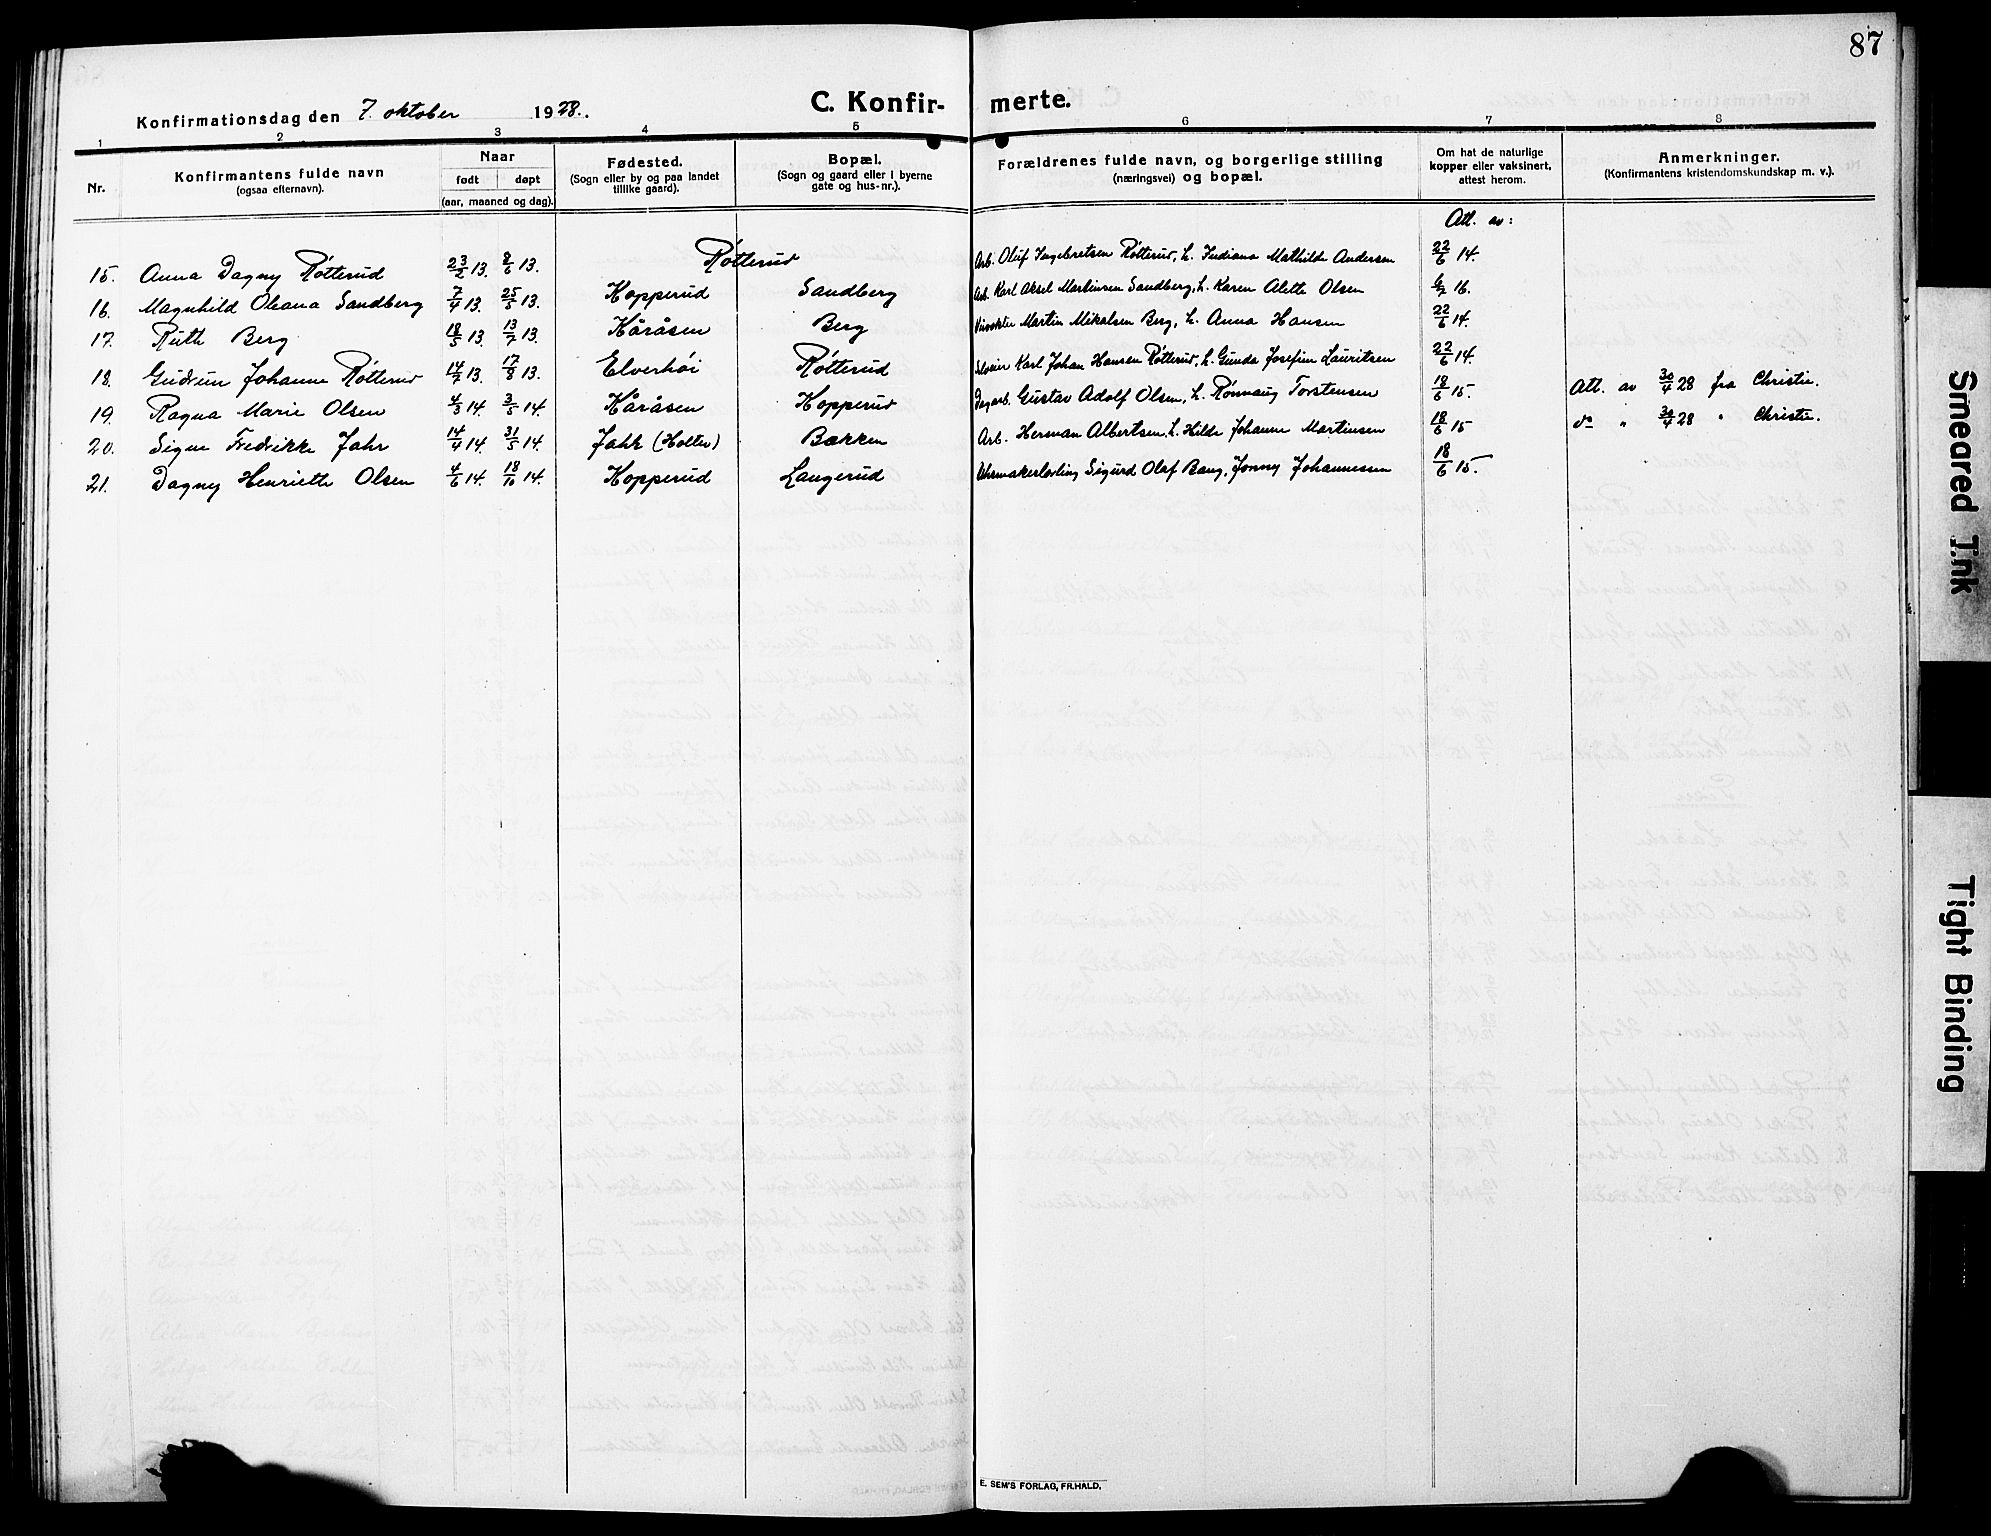 87
Konfirmationsdag den 7. oktober 1928.
C. Konfir- merte.
1 2 3 4 5 6 7 8
Nr.
Konfirmantens fulde navn
(ogsaa efternavn).
Naar
født døpt
(aar, maaned og dag).
Fødested.
(Sogn eller by og paa landet
tillike gaard).
Bopæl.
(Sogn og gaard eller i byerne
gate og hus-nr.).
Forældrenes fulde navn, og borgerlige stilling
(næringsvei) og bopæl.
Om hat de naturlige
kopper eller vaksinert,
attest herom.
Anmerkninger.
(Konfirmantens kristendomskundskap m. v.).
Att. av:
15. Anna Dagny Røtterud 23/2 13. 8/6 13. Røtterud Arb. Oluf Ingebretsen Røtterud, h. Indiana Mathilde Andersen 22/6 14.
16. Magnhild Oleana Sandberg 7/4 13. 25/5 13. Kopperud Sandberg Arb. Karl Aksel Martinsen Sandberg, h. Karen Alette Olsen 6/7 16.
17. Ruth Berg 18/5 13. 13/7 13. Kåråsen Berg Martin Mikalsen Berg, h. Anna Hansen 22/6 14.
18. Gudrun Johanne Røtterud 14/7 13. 17/8 13. Elverhøi Røtterud Karl Johan Hansen Røtterud, h. Gunda Josefine Lauritsen 22/6 14.
19. Ragna Marie Olsen 4/3 14. 3/5 14. Kåråsen Kopperud Dagarb. Gustav Adolf Olsen, h. Rønnaug Torstensen 18/6 15. Att. av 30/4 28 fra Christie.
20. Signe Fredrikke Jahr 14/4 14. 31/5 14. Jahr (Holter) Bakken Arb. Herman Albertsen, h. Hilda Johanne Martinsen 18/6 15 do " 30/4 28 " Christie.
21. Dagny Henriette Olsen 4/6 14. 18/10 14. Kopperud Langerud Urmakerlærling Sigurd Olaf Bang, Jonny Johannessen 18/6 15.
E. SEM'S FORLAG, FR.HALD.
Smeared Ink
Tight Binding